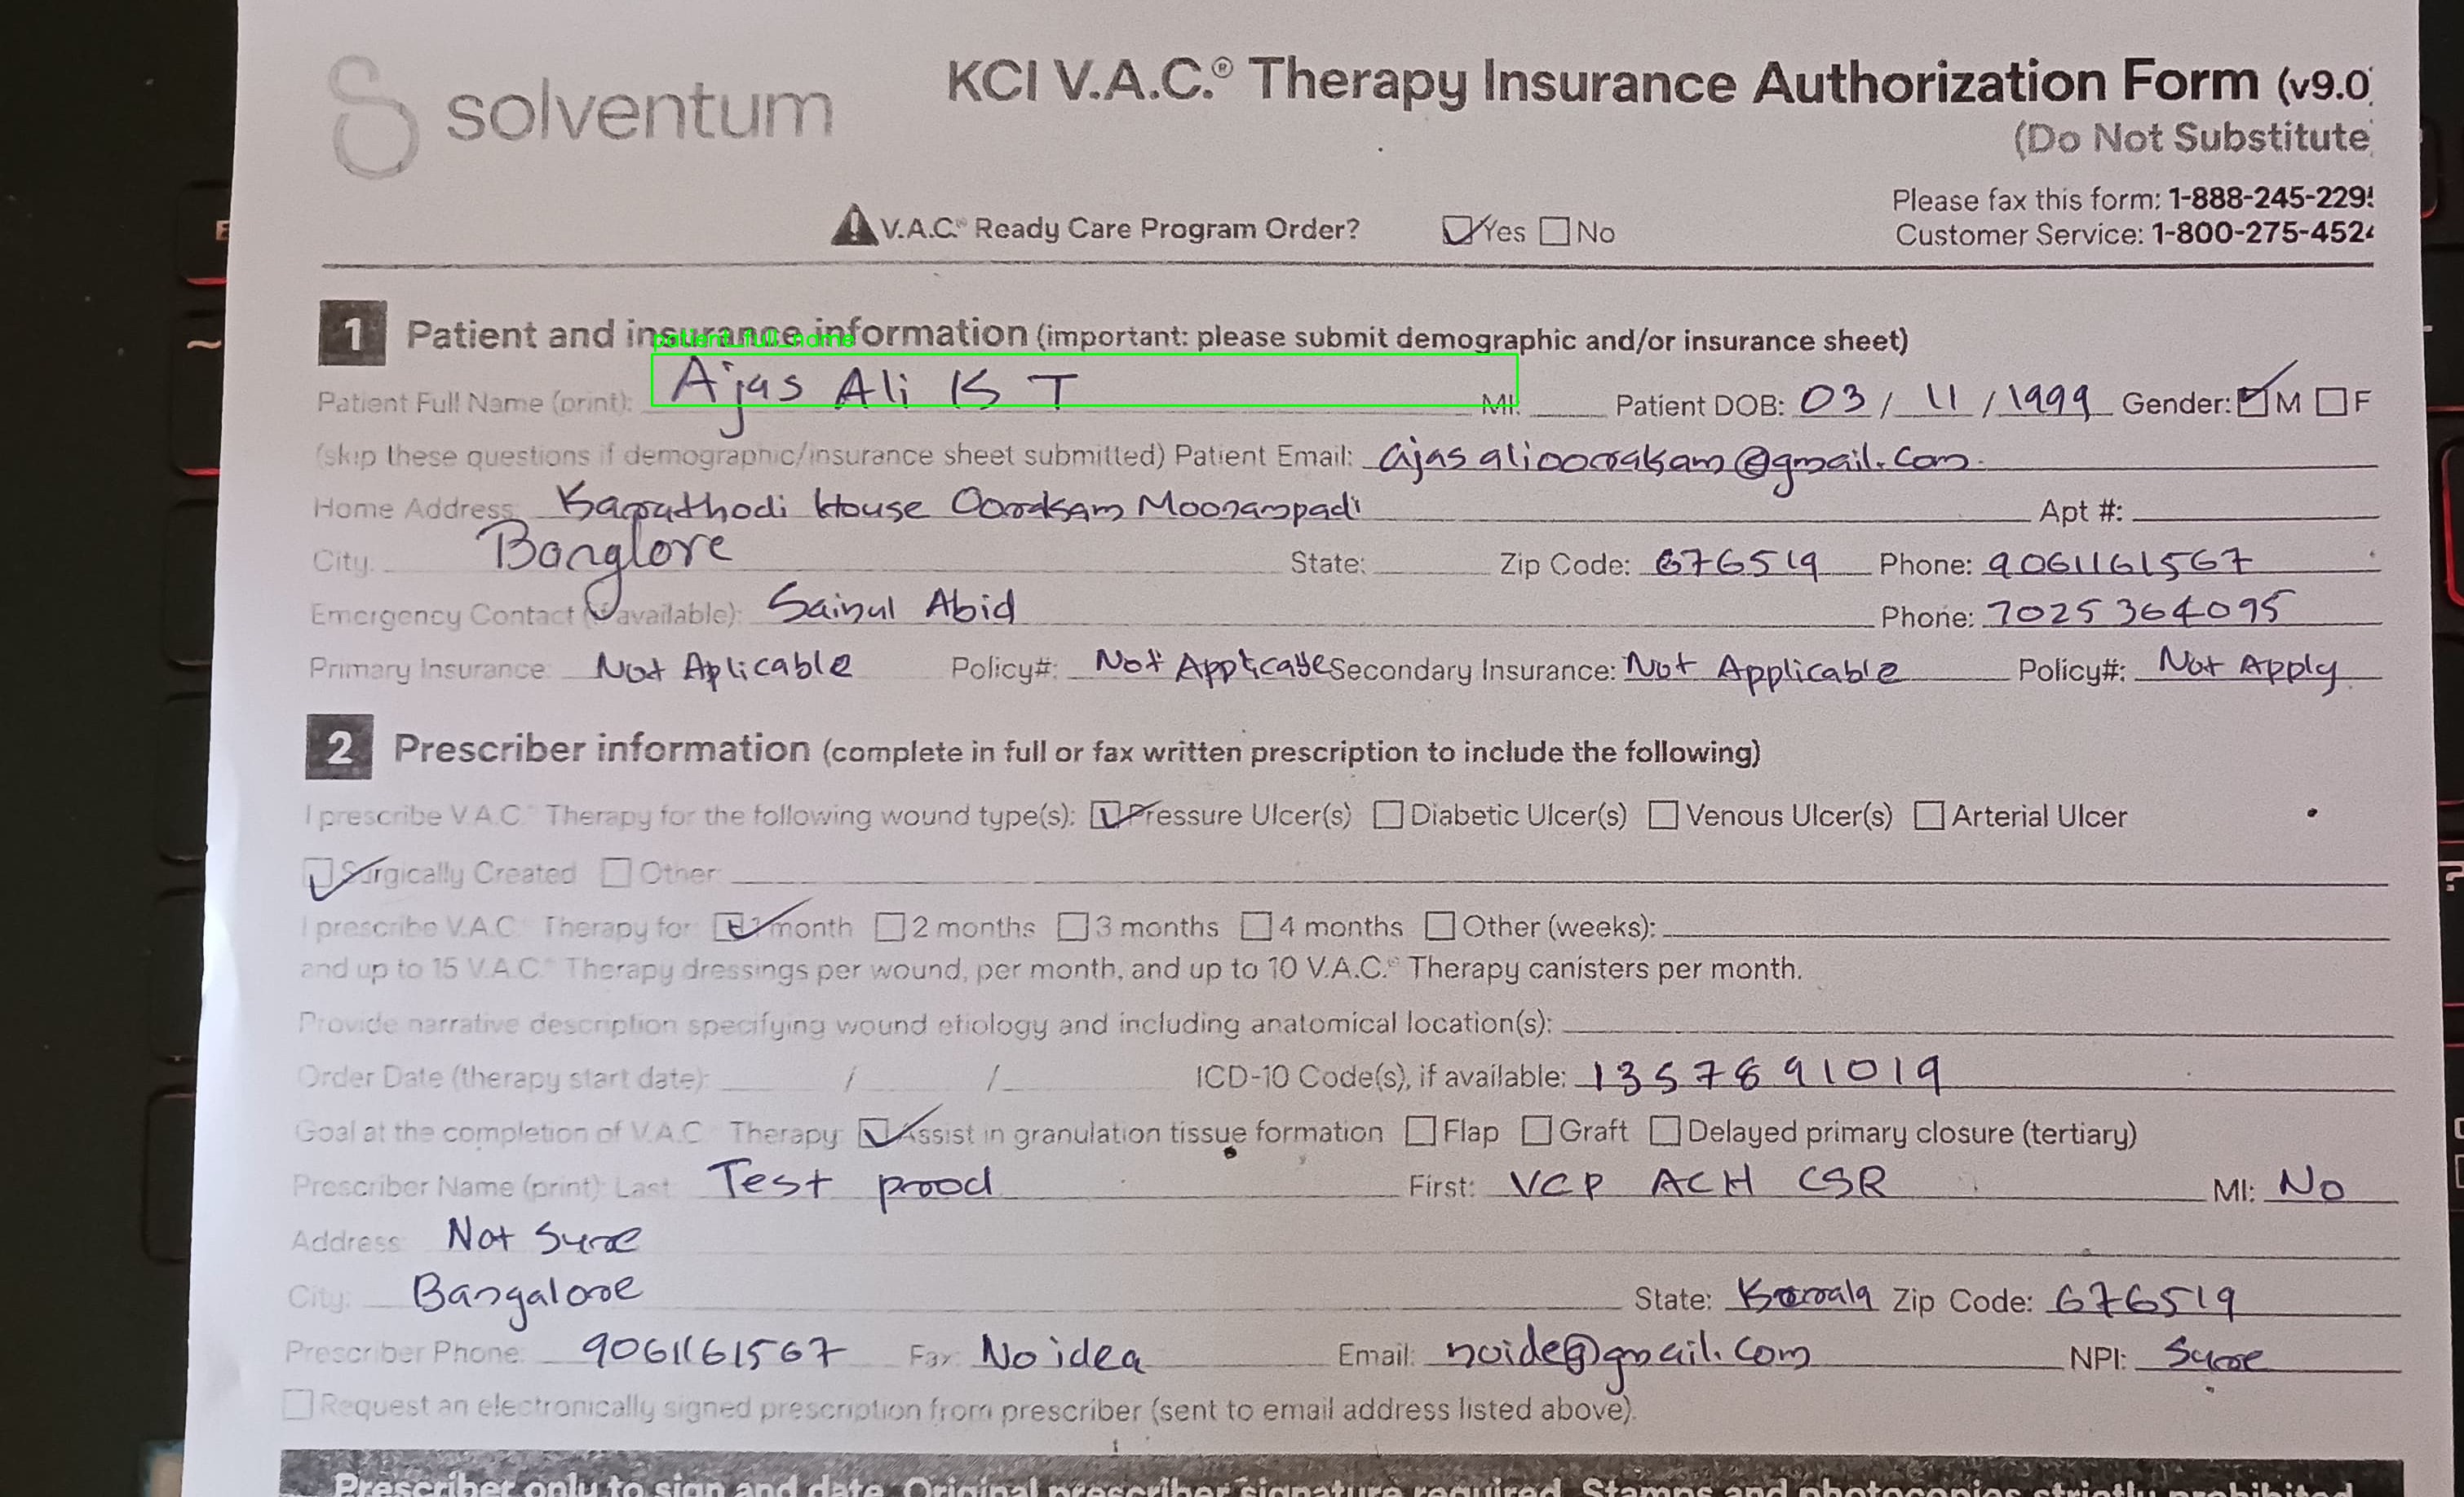 solventum
KCI V.A.C.® Therapy Insurance Authorization Form (v9.0
(Do Not Substitute
Please fax this form: 1-888-245-229
V.A.C.® Ready Care Program Order? Yes No
Customer Service: 1-800-275-452
1 Patient and insurance information (important: please submit demographic and/or insurance sheet)
patient_full_name
Patient Full Name (print): Ajas Ali K T MI: Patient DOB: 03 / 11 / 1999 Gender: M F
(skip these questions if demographic/insurance sheet submitted) Patient Email: ajasalioorakam@gmail.com
Home Address: House Oorakam Moonampadi Apt #:
City: Banglore State: Zip Code: 676519 Phone: 9061161567
Emergency Contact (if available): Sainul Abid Phone: 7025364095
Primary Insurance: Not Aplicable Policy#: Not Secondary Insurance: Not Applicable Policy#: Not Apply
2 Prescriber information (complete in full or fax written prescription to include the following)
I prescribe V.A.C.® Therapy for the following wound type(s): Pressure Ulcer(s) Diabetic Ulcer(s) Venous Ulcer(s) Arterial Ulcer
Surgically Created Other
I prescribe V.A.C.® Therapy for: 1 month 2 months 3 months 4 months Other (weeks):
and up to 15 V.A.C.® Therapy dressings per wound, per month, and up to 10 V.A.C.® Therapy canisters per month.
Provide narrative description specifying wound etiology and including anatomical location(s):
Order Date (therapy start date): / / ICD-10 Code(s), if available: 1357891019
Goal at the completion of V.A.C.® Therapy: Assist in granulation tissue formation Flap Graft Delayed primary closure (tertiary)
Prescriber Name (print): Last: Test prod First: VCP ACH CSR MI: No
Address: Not Sure
City: Bangalore State: Kerala Zip Code: 676519
Prescriber Phone: 9061161567 Fax: No idea Email: noide@gmail.com NPI: Sure
Request an electronically signed prescription from prescriber (sent to email address listed above).
Prescriber only to sign and date. Original prescriber signature required. Stamps and photocopies strictly prohibited